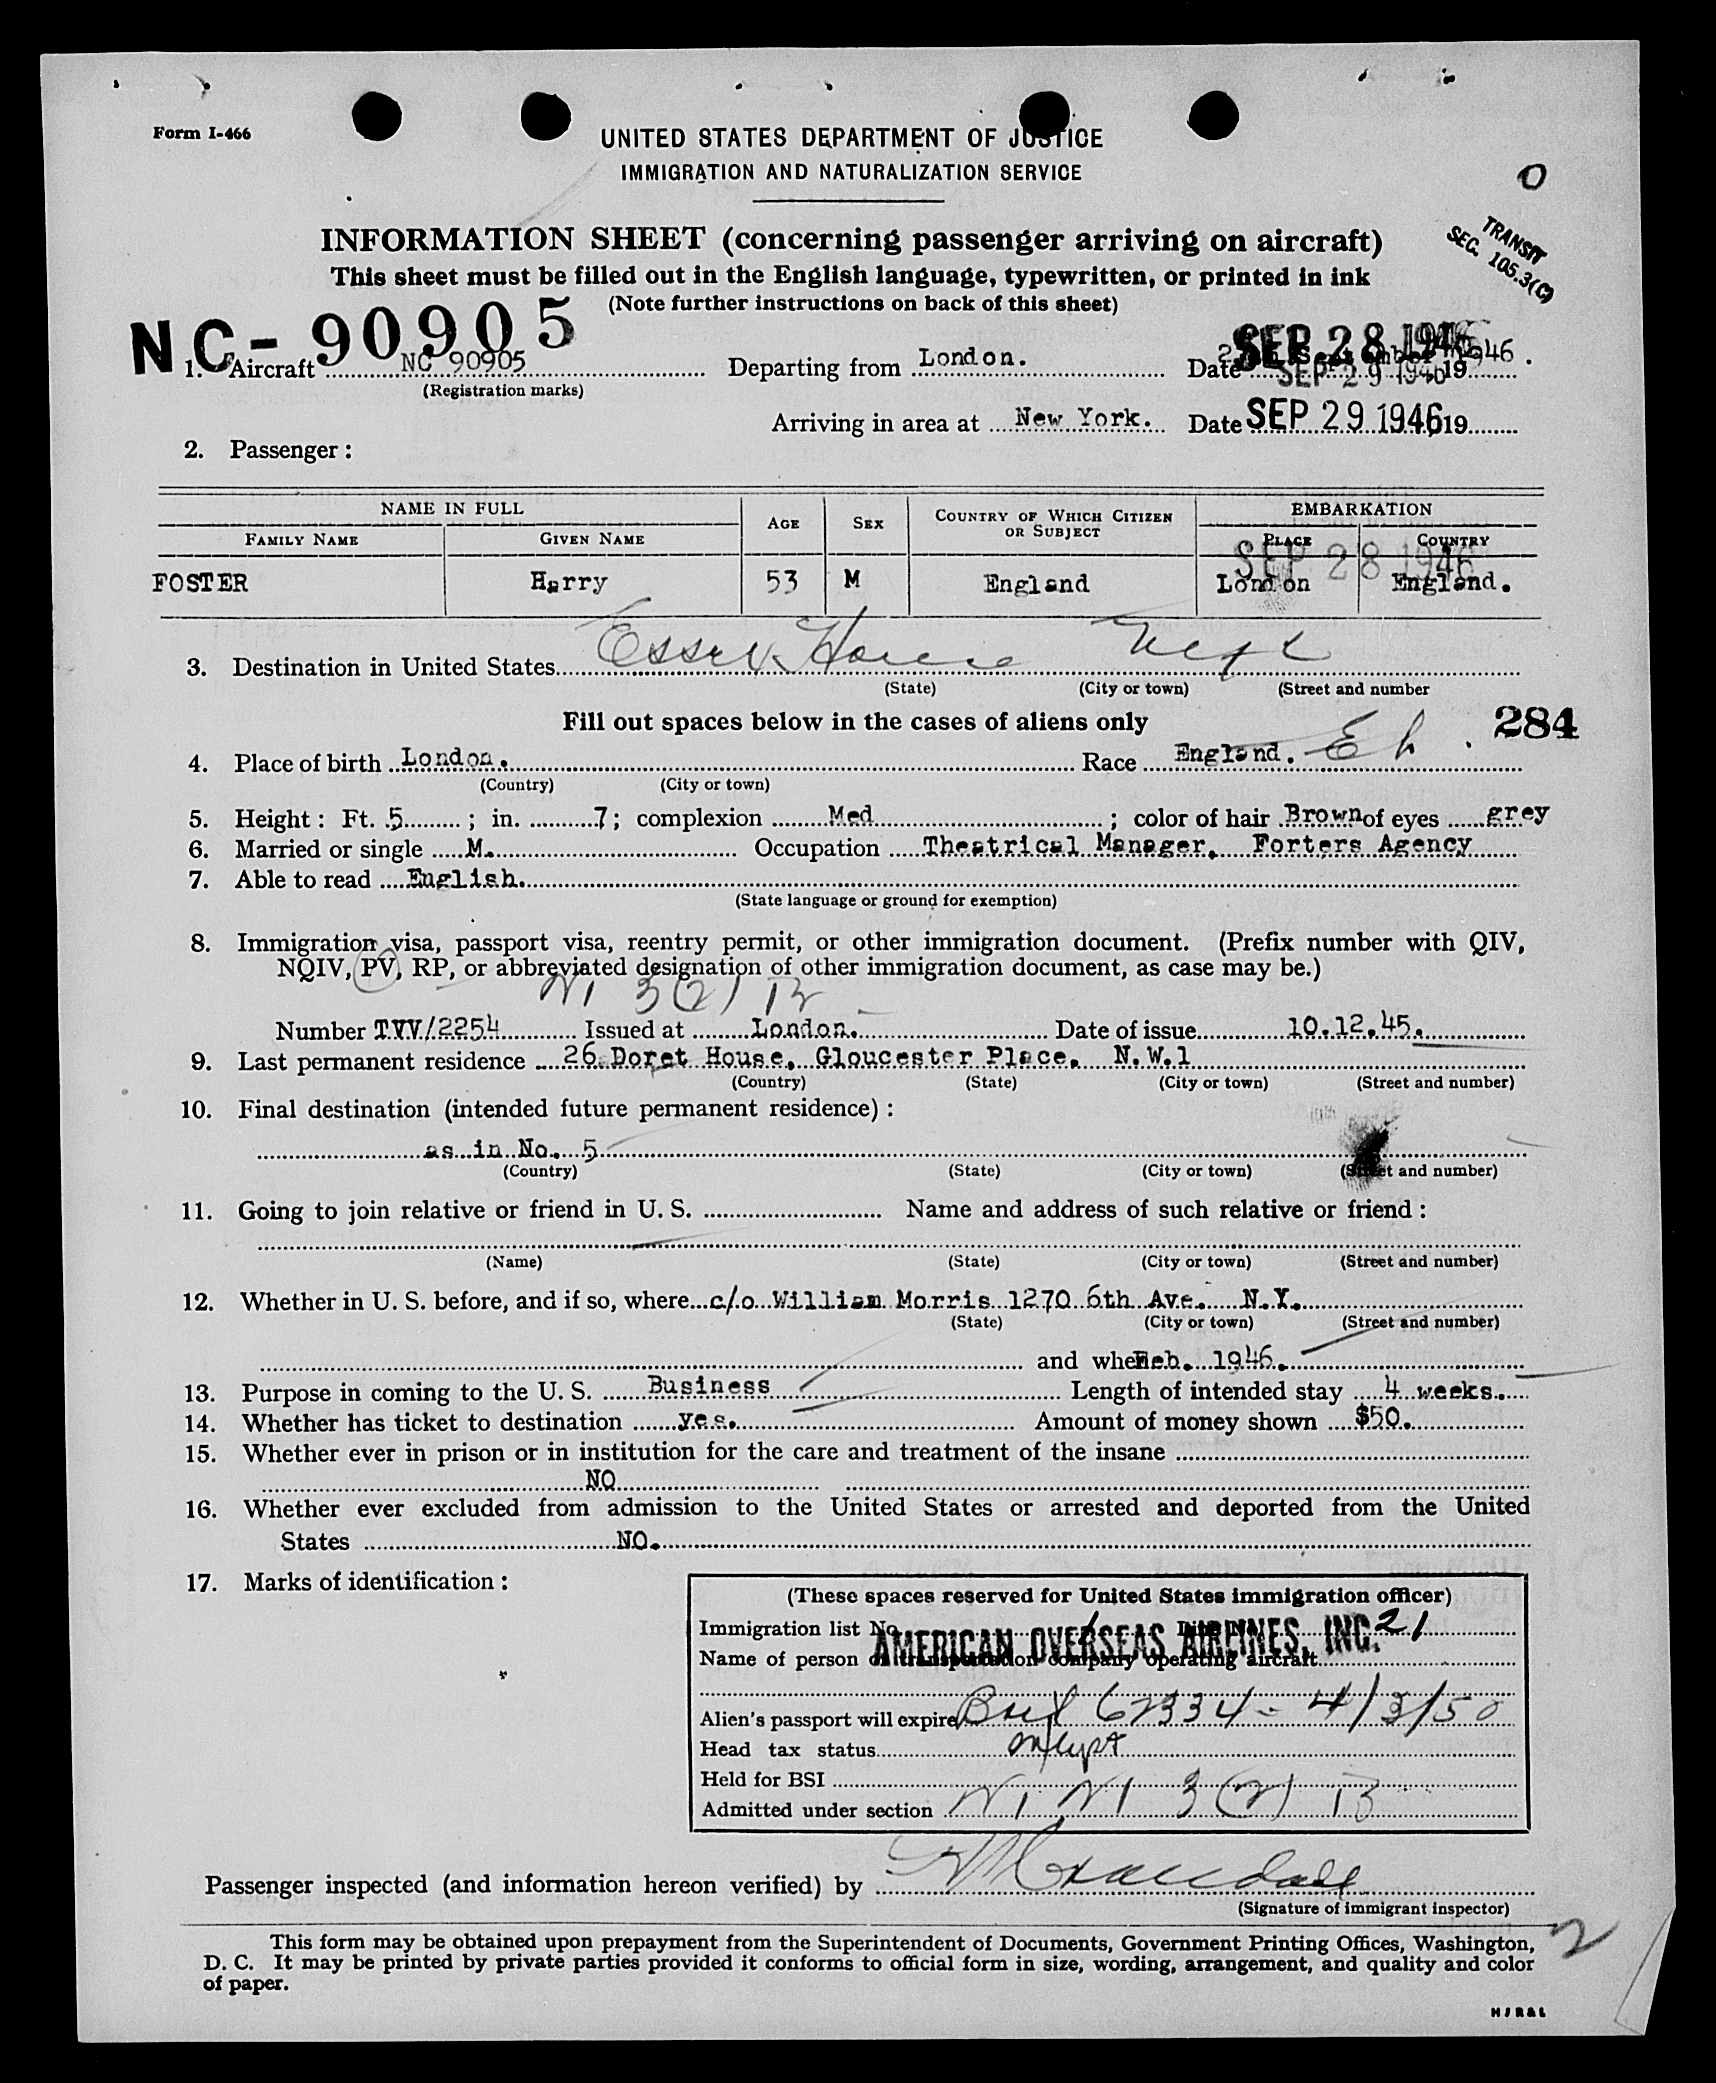 Form I-466
UNITED STATES DEPARTMENT OF JUSTICE
IMMIGRATION AND NATURALIZATION SERVICE
O
TRANSIT
SEC. 105.3(C)
INFORMATION SHEET (concerning passenger arriving on aircraft)
This sheet must be filled out in the English language, typewritten, or printed in ink
(Note further instructions on back of this sheet)
NC-90905
SEP 28 1946
1. Aircraft NC 90905 Departing from London. Date 1946.
(Registration marks)
SEP 29 1946 19
Arriving in area at New York. Date SEP 29 1946 19
2. Passenger:
NAME IN FULL AGE SEX COUNTRY OF WHICH CITIZEN OR SUBJECT EMBARKATION
FAMILY NAME GIVEN NAME PLACE COUNTRY
SEP 28 1946
FOSTER Harry 53 M England London England.
3. Destination in United States Essex House
(State) (City or town) (Street and number
Fill out spaces below in the cases of aliens only
284
4. Place of birth London. Race England.
(Country) (City or town)
5. Height: Ft. 5 ; in. 7; complexion Med ; color of hair Brown of eyes grey
6. Married or single M. Occupation Theatrical Manager, Forters Agency
7. Able to read English.
(State language or ground for exemption)
8. Immigration visa, passport visa, reentry permit, or other immigration document. (Prefix number with QIV,
NQIV, PV, RP, or abbreviated designation of other immigration document, as case may be.)
3(2)
Number TVV/2254 Issued at London. Date of issue 10.12.45.
9. Last permanent residence 26 Doret House, Gloucester Place, N.W.1
(Country) (State) (City or town) (Street and number)
10. Final destination (intended future permanent residence):
as in No. 5
(Country) (State) (City or town) (Street and number)
11. Going to join relative or friend in U. S. Name and address of such relative or friend:
(Name) (State) (City or town) (Street and number)
12. Whether in U. S. before, and if so, where c/o William Morris 1270 6th Ave. N.Y.
(State) (City or town) (Street and number)
and when Feb. 1946.
13. Purpose in coming to the U. S. Business Length of intended stay 4 weeks.
14. Whether has ticket to destination yes. Amount of money shown $50.
15. Whether ever in prison or in institution for the care and treatment of the insane
NO
16. Whether ever excluded from admission to the United States or arrested and deported from the United
States NO.
17. Marks of identification:
(These spaces reserved for United States immigration officer)
Immigration list No. 21
AMERICAN OVERSEAS AIRLINES, INC.
Name of person or transportation company operating aircraft
Alien's passport will expire 62334 - 4/3/50
Head tax status
Held for BSI
Admitted under section 3(2)
Passenger inspected (and information hereon verified) by
(Signature of immigrant inspector)
This form may be obtained upon prepayment from the Superintendent of Documents, Government Printing Offices, Washington,
D. C. It may be printed by private parties provided it conforms to official form in size, wording, arrangement, and quality and color
of paper.
2